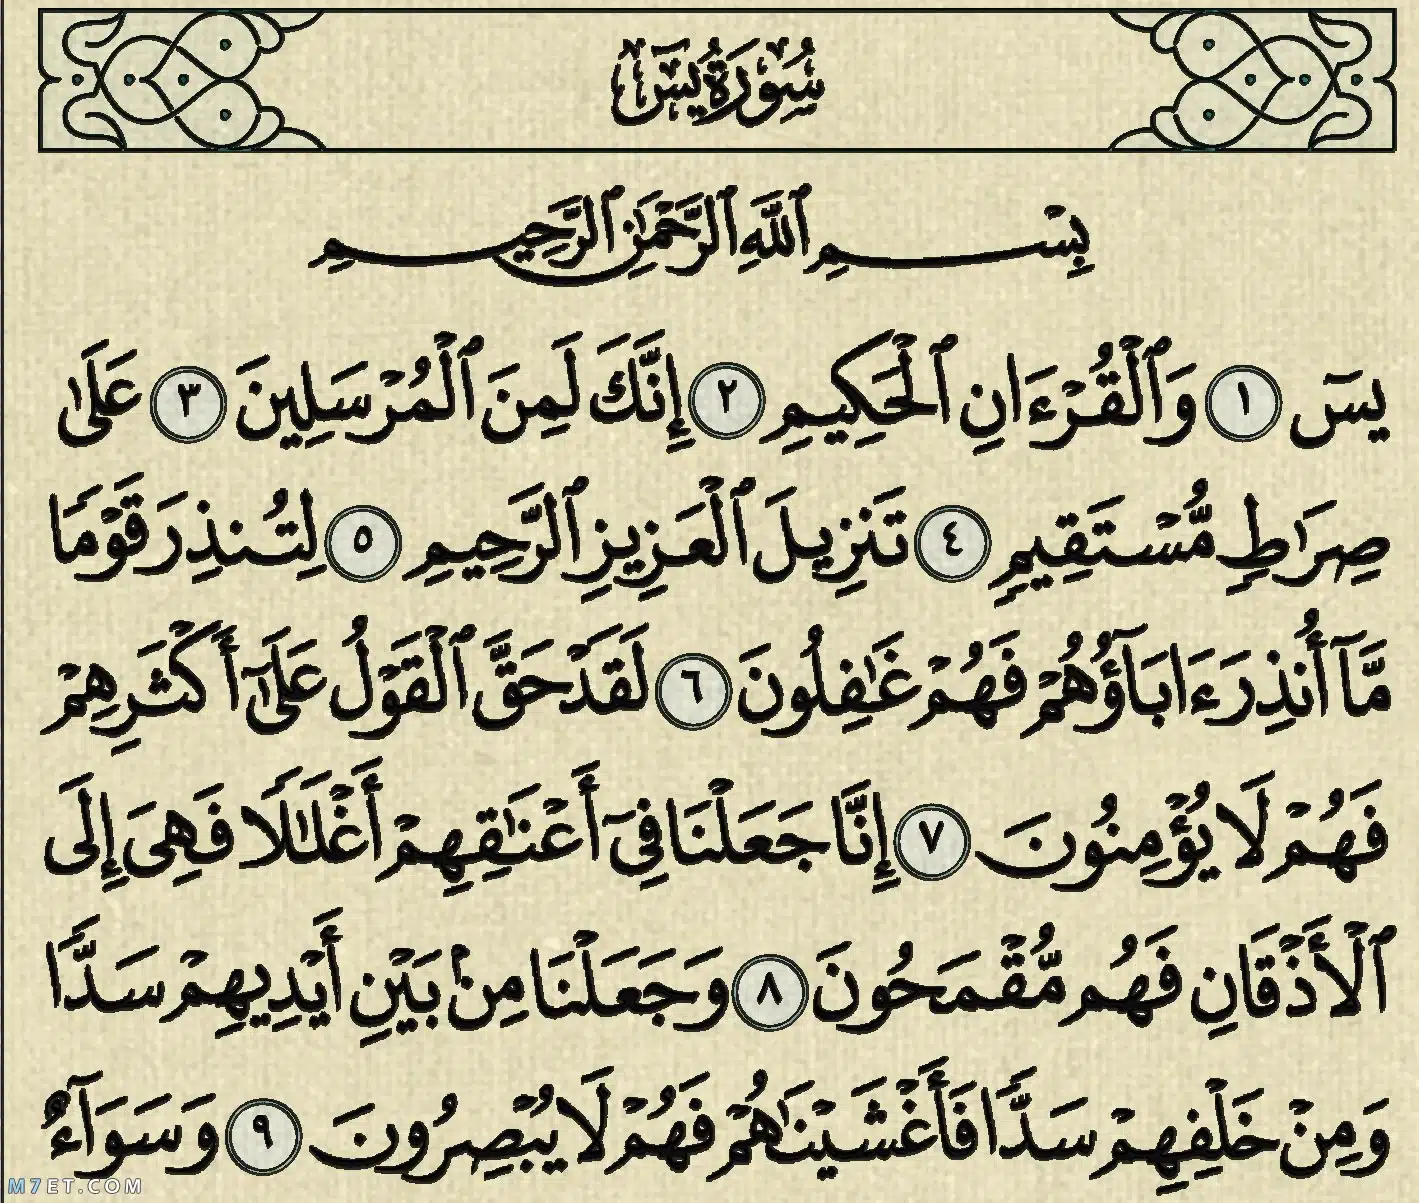 سُورَةُ يسٓ
بِسْمِ ٱللَّهِ ٱلرَّحْمَٰنِ ٱلرَّحِيمِ
يسٓ ١ وَٱلْقُرْءَانِ ٱلْحَكِيمِ ٢ إِنَّكَ لَمِنَ ٱلْمُرْسَلِينَ ٣ عَلَىٰ
صِرَٰطٍ مُّسْتَقِيمٍ ٤ تَنزِيلَ ٱلْعَزِيزِ ٱلرَّحِيمِ ٥ لِتُنذِرَ قَوْمًا
مَّآ أُنذِرَ ءَابَآؤُهُمْ فَهُمْ غَٰفِلُونَ ٦ لَقَدْ حَقَّ ٱلْقَوْلُ عَلَىٰٓ أَكْثَرِهِمْ
فَهُمْ لَا يُؤْمِنُونَ ٧ إِنَّا جَعَلْنَا فِىٓ أَعْنَٰقِهِمْ أَغْلَٰلًا فَهِىَ إِلَى
ٱلْأَذْقَانِ فَهُم مُّقْمَحُونَ ٨ وَجَعَلْنَا مِنۢ بَيْنِ أَيْدِيهِمْ سَدًّا
وَمِنْ خَلْفِهِمْ سَدًّا فَأَغْشَيْنَٰهُمْ فَهُمْ لَا يُبْصِرُونَ ٩ وَسَوَآءٌ
M7ET.COM